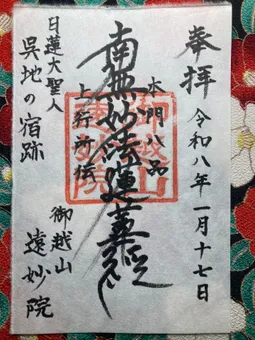 奉拝
令和八年一月十七日
本門八品
南無妙法蓮華経
上行所伝
日蓮大聖人
呉地の宿跡
御越山
遠妙院